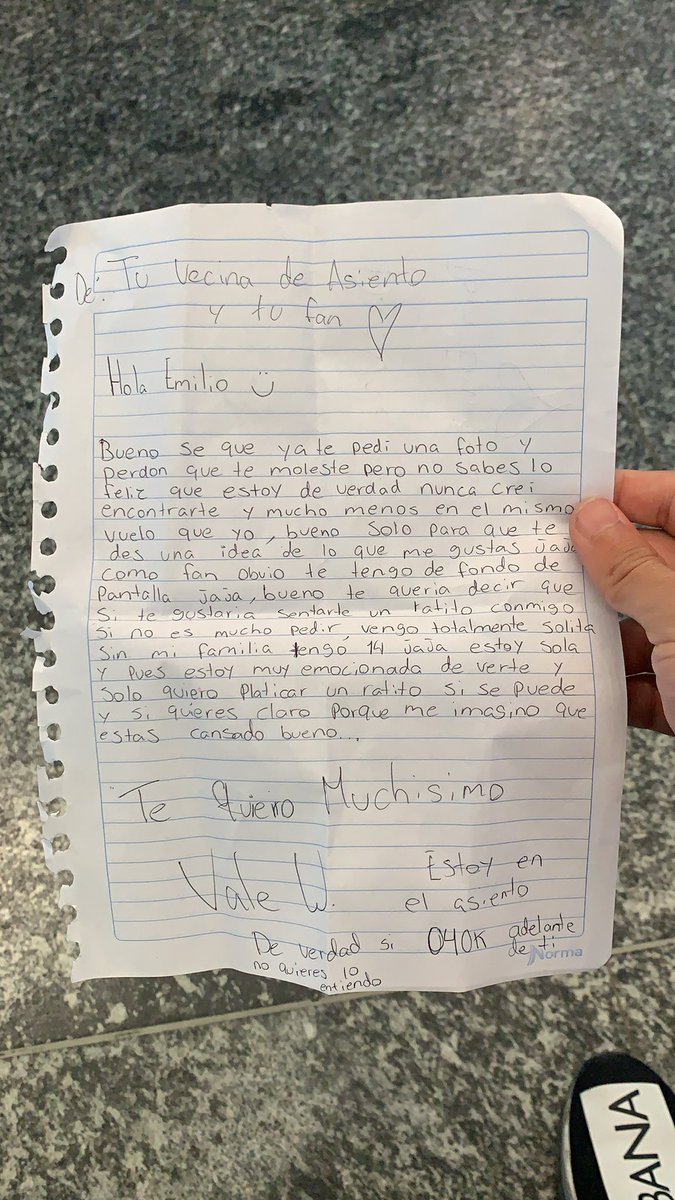 De: Tu Vecina de Asiento
y tu fan ♡
Hola Emilio :)
Bueno se que ya te pedi una foto y
perdon que te moleste pero no sabes lo
feliz que estoy de verdad nunca crei
encontrarte y mucho menos en el mismo
vuelo que yo, bueno solo para que te
des una idea de lo que me gustas jaja
como fan obvio te tengo de fondo de
Pantalla jaja, bueno te queria decir que
si te gustaria sentarte un ratito conmigo
si no es mucho pedir, vengo totalmente solita
sin mi familia tengo 14 jaja estoy sola
y pues estoy muy emocionada de verte y
solo quiero platicar un ratito si se puede
y si quieres claro porque me imagino que
estas cansado bueno...
Te Quiero Muchisimo
Vale W.
Estoy en
el asiento
040K adelante
de ti
De verdad si
no quieres lo
entiendo
Norma
BANA